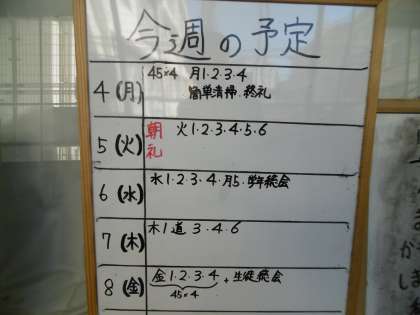 今週の予定
4(月) 45×4 月1・2・3・4
簡単清掃 終礼
5(火) 朝礼 火1・2・3・4・5・6
6(水) 水1・2・3・4・月5・学年総会
7(木) 木1 道 3・4・6
8(金) 金1・2・3・4 + 生徒総会
45×4